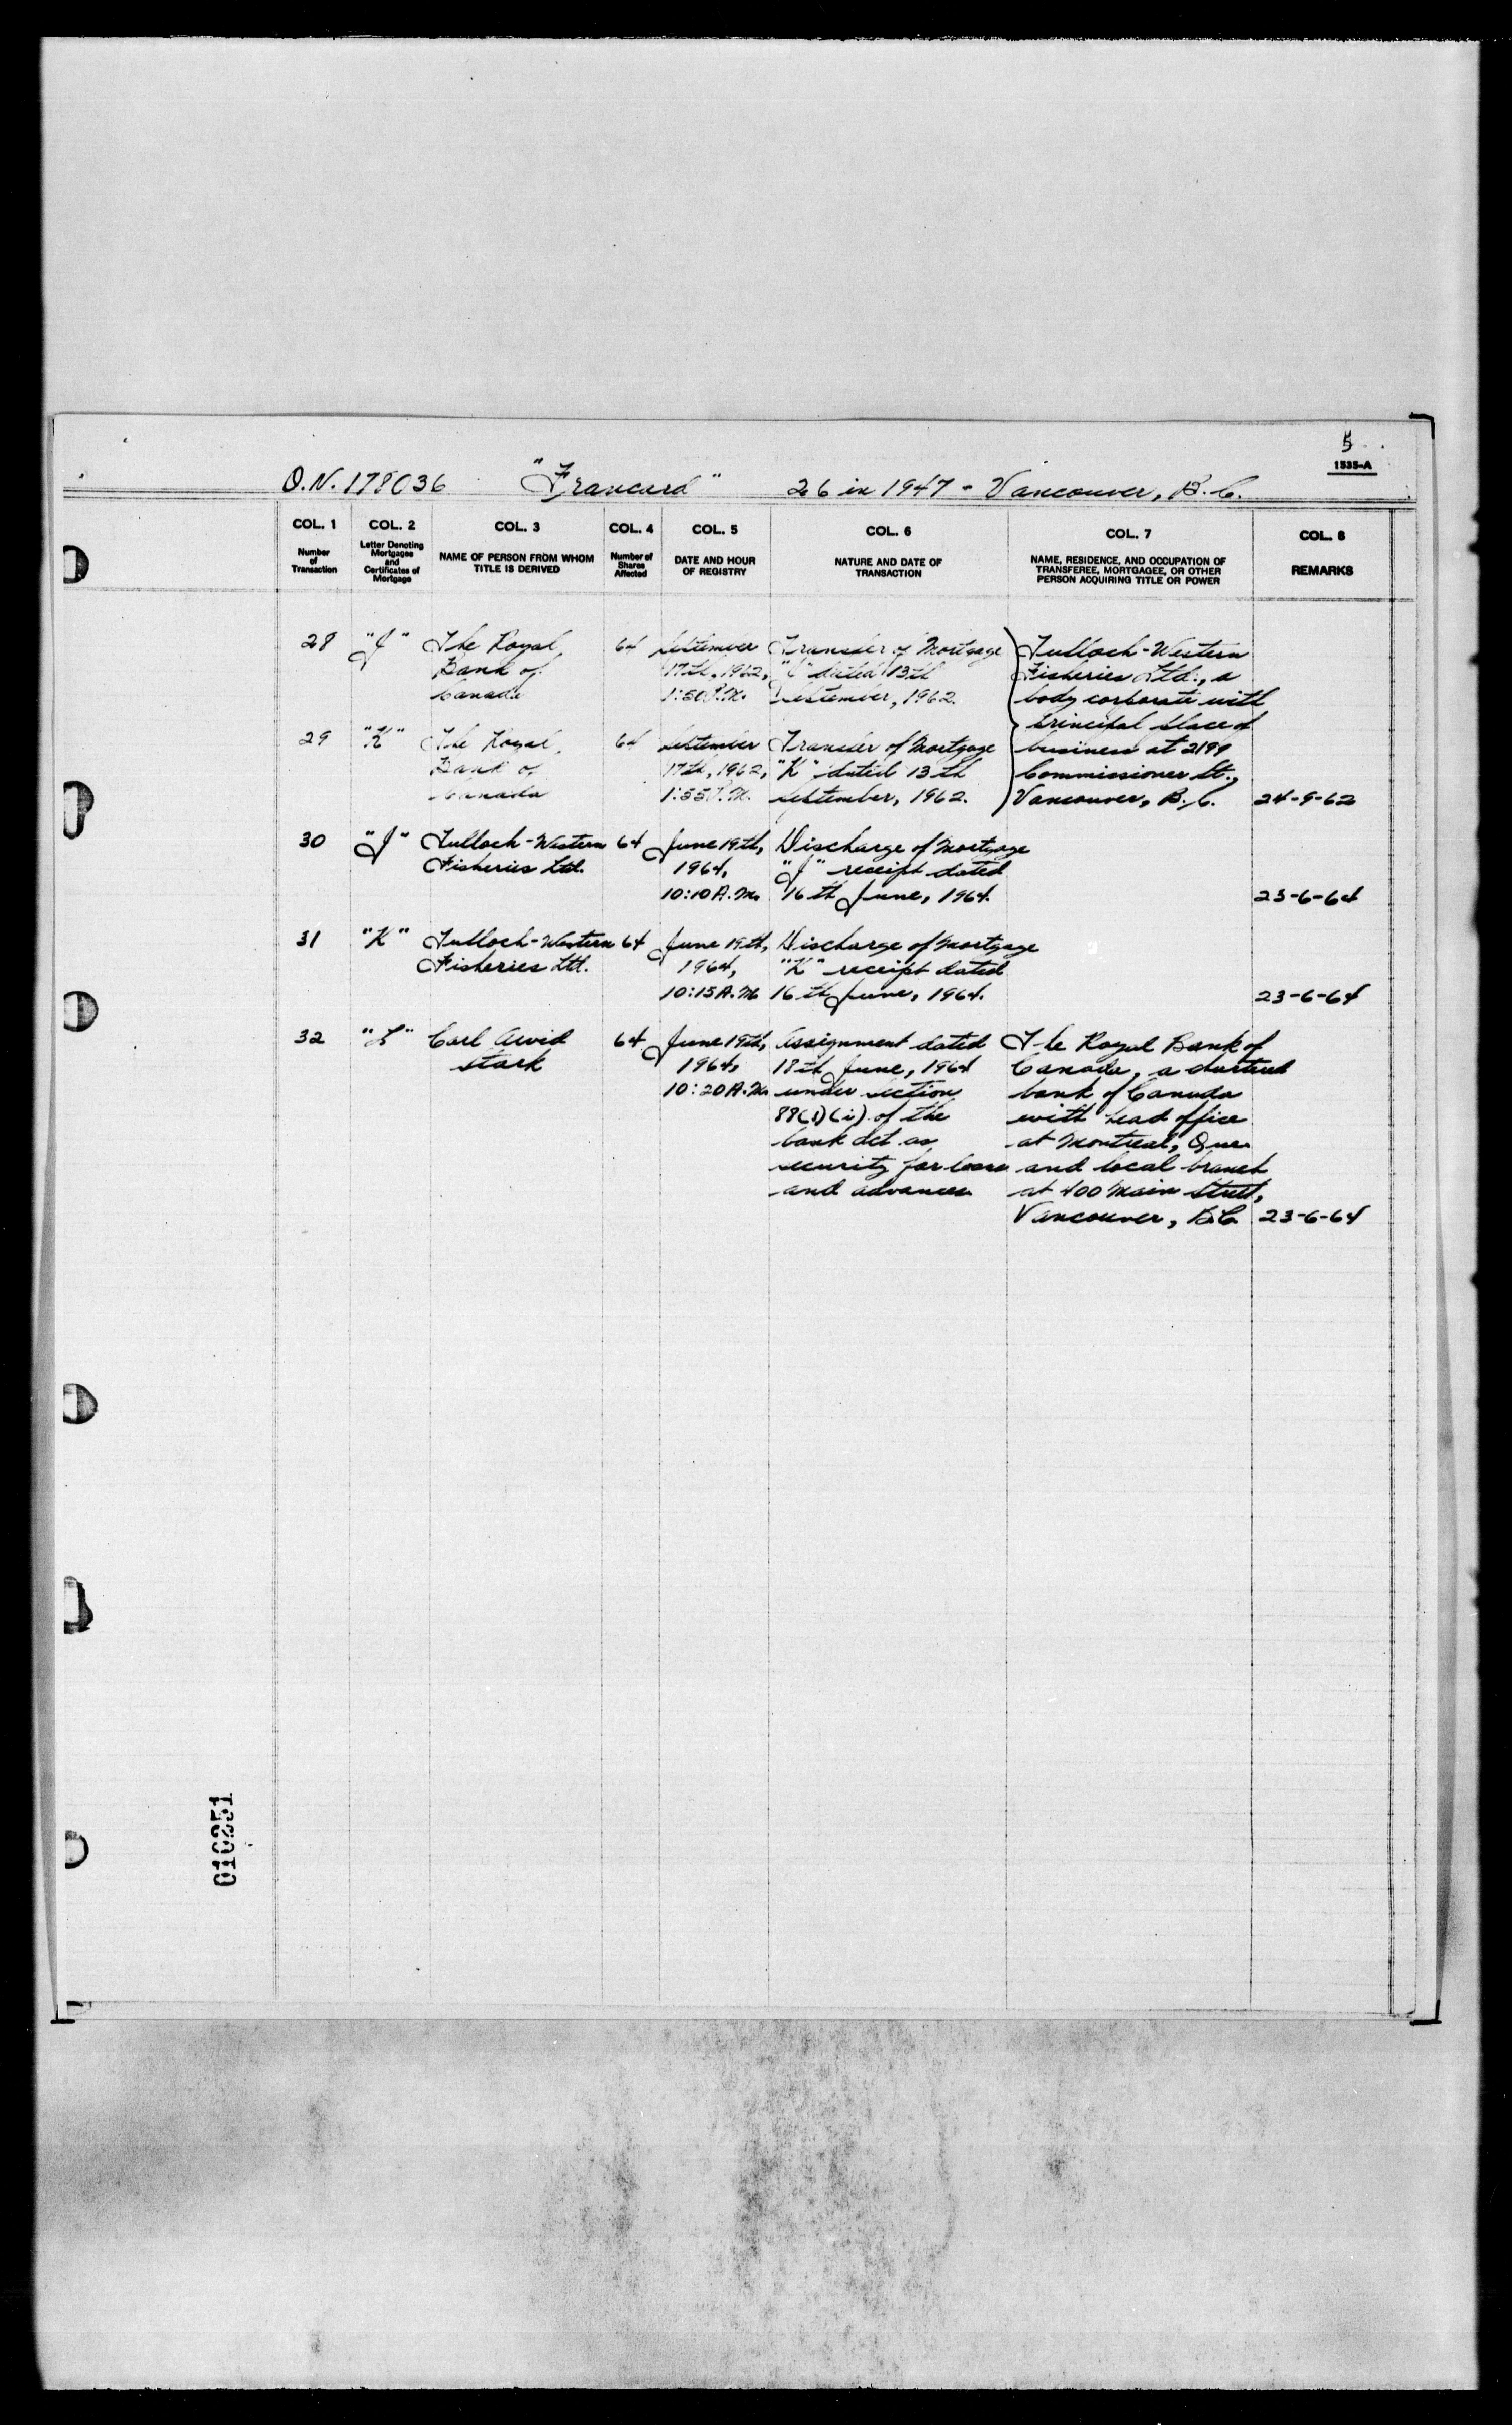 5
1535-A
O.N. 178036 "Francard" 26 in 1947 - Vancouver, B.C.
COL. 1 COL. 2 COL. 3 COL. 4 COL. 5 COL. 6 COL. 7 COL. 8
Number of Transaction
Letter Denoting Mortgages and Certificates of Mortgage
NAME OF PERSON FROM WHOM TITLE IS DERIVED
Number of Shares Affected
DATE AND HOUR OF REGISTRY
NATURE AND DATE OF TRANSACTION
NAME, RESIDENCE, AND OCCUPATION OF TRANSFEREE, MORTGAGEE, OR OTHER PERSON ACQUIRING TITLE OR POWER
REMARKS
28 "J" The Royal 64 September Transfer of Mortgage Tulloch-Western
Bank of 17th, 1962, "J" dated 13th Fisheries Ltd., a
Canada 1:50 P.M. September, 1962. body corporate with
principal place of
29 "K" The Royal 64 September Transfer of Mortgage business at 2199
Bank of 17th, 1962, "K" dated 13th Commissioner St.,
Canada 1:55 P.M. September, 1962. Vancouver, B.C. 24-9-62
30 "J" Tulloch-Western 64 June 19th, Discharge of Mortgage
Fisheries Ltd. 1964, "J" receipt dated
10:10 A.M. 16th June, 1964. 23-6-64
31 "K" Tulloch-Western 64 June 19th, Discharge of Mortgage
Fisheries Ltd. 1964, "K" receipt dated
10:15 A.M. 16th June, 1964. 23-6-64
32 "L" Carl Arvid 64 June 19th, Assignment dated The Royal Bank of
Stark 1964, 18th June, 1964 Canada, a chartered
10:20 A.M. under section bank of Canada
88(1)(i) of the with head office
bank Act as at Montreal, Que
security for loans and local branch
and advances at 400 Main Street,
Vancouver, B.C. 23-6-64
010251